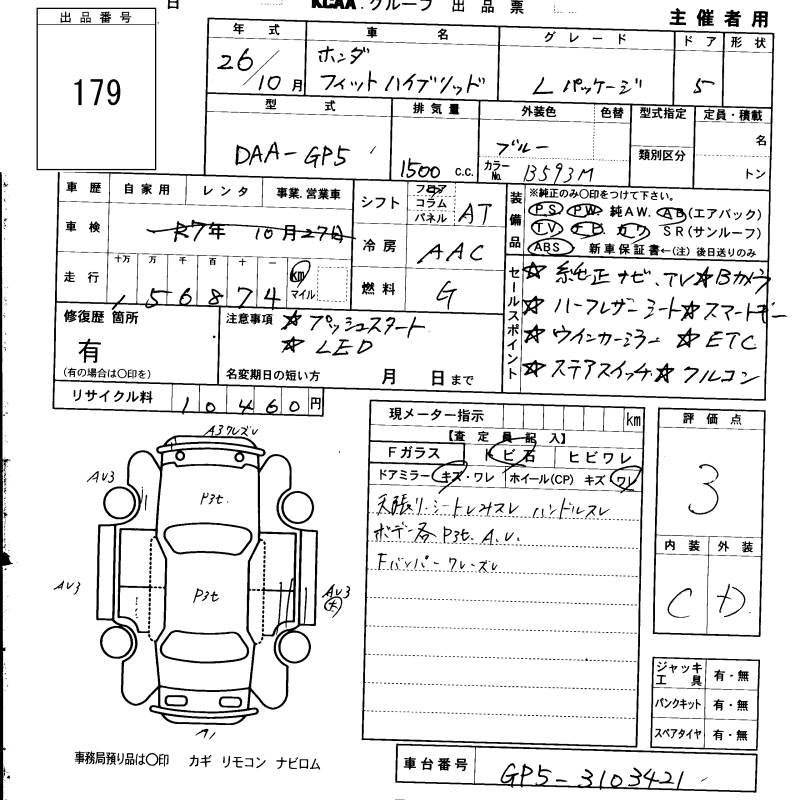 日 KCAA.グループ 出品票
主催者用
出品番号
179
年式 車名 グレード ドア 形状
26/10月 ホンダ フィットハイブリッド Lパッケージ 5
型式 排気量 外装色 色替 型式指定 定員・積載
DAA-GP5 1500c.c. ブルー 名
カラーNo. B593M 類別区分 トン
車歴 自家用 レンタ 事業.営業車
車検 R7年 10月27日
走行 十万 万 千 百 十 一
156874 km マイル
シフト フロア コラム パネル AT
冷房 AAC
燃料 G
装備品 ※純正のみ○印をつけて下さい。
P.S P.W. 純AW. AB(エアバック)
T.V ナビ. カワ SR(サンルーフ)
ABS 新車保証書←(注)後日送りのみ
セールスポイント
☆純正ナビ.TV☆Bカメラ
☆ハーフレザーシート☆スマートキー
☆ウインカーミラー ☆ETC
☆ステアスイッチ☆フルコン
修復歴 箇所
有
(有の場合は○印を)
注意事項 ☆プッシュスタート
☆LED
名変期日の短い方 月 日まで
リサイクル料 10460円
現メーター指示 km
【査定員記入】
Fガラス トビ石 ヒビワレ
ドアミラー キズ・ワレ ホイール(CP) キズ ワレ
天張リ.シートレザスレ ハンドルスレ
ボデー各 P3t. A.U.
Fバンパー ワレズレ
評価点
3
内装 外装
C D
A3ワレズレ
AU3
P3t.
AU3
P3t
AU3
大
A1
ジャッキ工具 有・無
パンクキット 有・無
スペアタイヤ 有・無
事務局預り品は○印 カギ リモコン ナビロム
車台番号 GP5-3103421